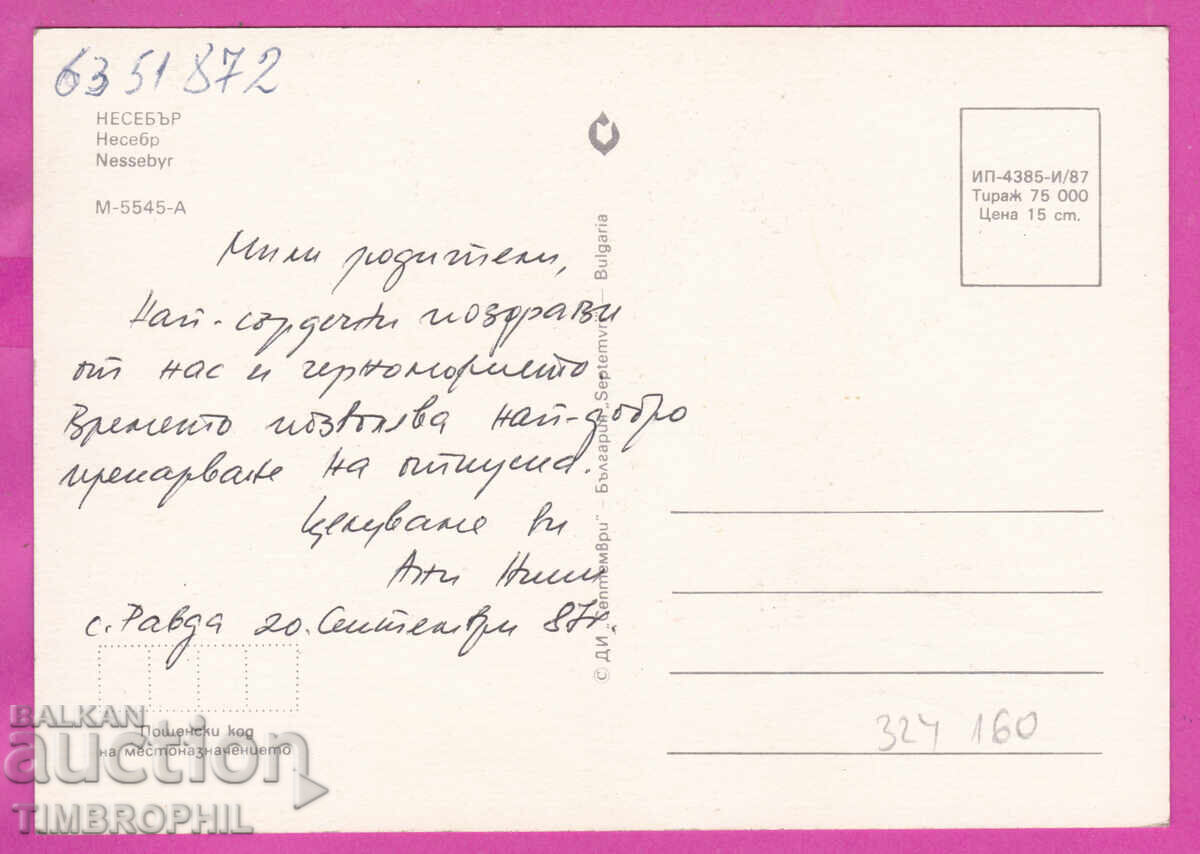 6351872
НЕСЕБЪР
Несебр
Nessebyr
М-5545-А
ИП-4385-И/87
Тираж 75 000
Цена 15 ст.
Мили родители,
Най-сърдечни поздрави
от нас и черноморието.
Времето позволява най-добро
прекарване на отпуска.
Целуваме ви
Ани
с. Равда 20. Септември 87г.
© ДИ „Септември" – България „Septemvri" – Bulgaria
Пощенски код
на местоназначението
324 160
BALKAN
auction
TIMBROPHIL